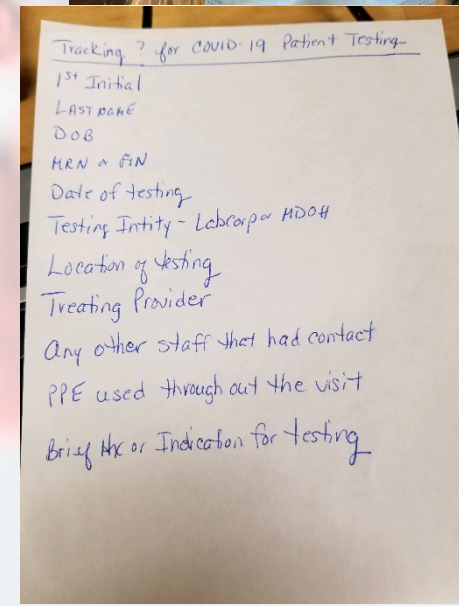 Tracking ? for COVID-19 Patient Testing
1st Initial
LAST NAME
DOB
MRN or FIN
Date of testing
Testing Intity - Labcorp or MDOH
Location of testing
Treating Provider
Any other staff that had contact
PPE used through out the visit
Brief Hx or Indication for testing